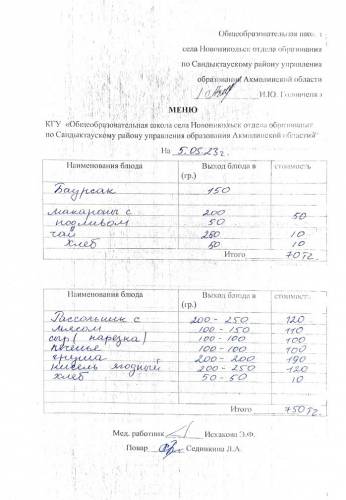 Общеобразовательная школа
села Новоникольск отдела образования
по Сандыктаускому району управления
образования Акмолинской области
И.Ю. Головченко
МЕНЮ
КГУ «Общеобразовательная школа села Новоникольск отдела образования
по Сандыктаускому району управления образования Акмолинской области»
На 5.05.23г.
Наименования блюда Выход блюда в (гр.) стоимость
Баурсак 150
макароны с 200 50
подливом 50
чай 200 10
хлеб 50 10
Итого 70тг.
Наименования блюда Выход блюда в (гр.) стоимость
Рассольник с 200-250 120
мясом 100-150 110
сыр (нарезка) 100-100 100
печенье 100-100 100
груша 200-200 190
кисель ягодный 200-250 120
хлеб 50-50 10
Итого 750тг.
Мед. работник Исхакова Э.Ф.
Повар Сединкина Л.А.